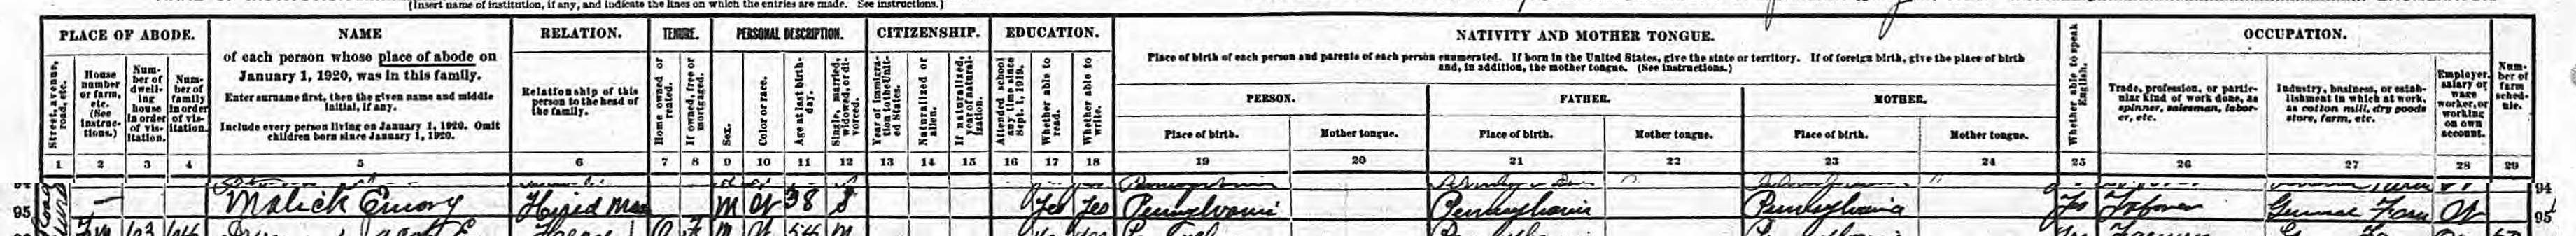 (Insert name of institution, if any, and indicate the lines on which the entries are made. See instructions.)
PLACE OF ABODE.
NAME
RELATION.
TENURE.
PERSONAL DESCRIPTION.
CITIZENSHIP.
EDUCATION.
NATIVITY AND MOTHER TONGUE.
OCCUPATION.
Street, avenue, road, etc.
House number or farm, etc. (See instructions.)
Number of dwelling house in order of visitation.
Number of family in order of visitation.
of each person whose place of abode on
January 1, 1920, was in this family.
Enter surname first, then the given name and middle
initial, if any.
Include every person living on January 1, 1920. Omit
children born since January 1, 1920.
Relationship of this
person to the head of
the family.
Home owned or rented.
If owned, free or mortgaged.
Sex.
Color or race.
Age at last birthday.
Single, married, widowed, or divorced.
Year of immigration to the United States.
Naturalized or alien.
If naturalized, year of naturalization.
Attended school any time since Sept. 1, 1919.
Whether able to read.
Whether able to write.
Place of birth of each person and parents of each person enumerated. If born in the United States, give the state or territory. If of foreign birth, give the place of birth
and, in addition, the mother tongue. (See instructions.)
PERSON. FATHER. MOTHER.
Place of birth. Mother tongue. Place of birth. Mother tongue. Place of birth. Mother tongue.
Whether able to speak English.
Trade, profession, or particular kind of work done, as spinner, salesman, laborer, etc.
Industry, business, or establishment in which at work, as cotton mill, dry goods store, farm, etc.
Employer, salary or wage worker, or working on own account.
Number of farm schedule.
1 2 3 4 5 6 7 8 9 10 11 12 13 14 15 16 17 18 19 20 21 22 23 24 25 26 27 28 29
94 94
95 — Malick Emory Hired Man M W 38 S Yes Yes Pennsylvania Pennsylvania Pennsylvania Yes Laborer General Farm W 95